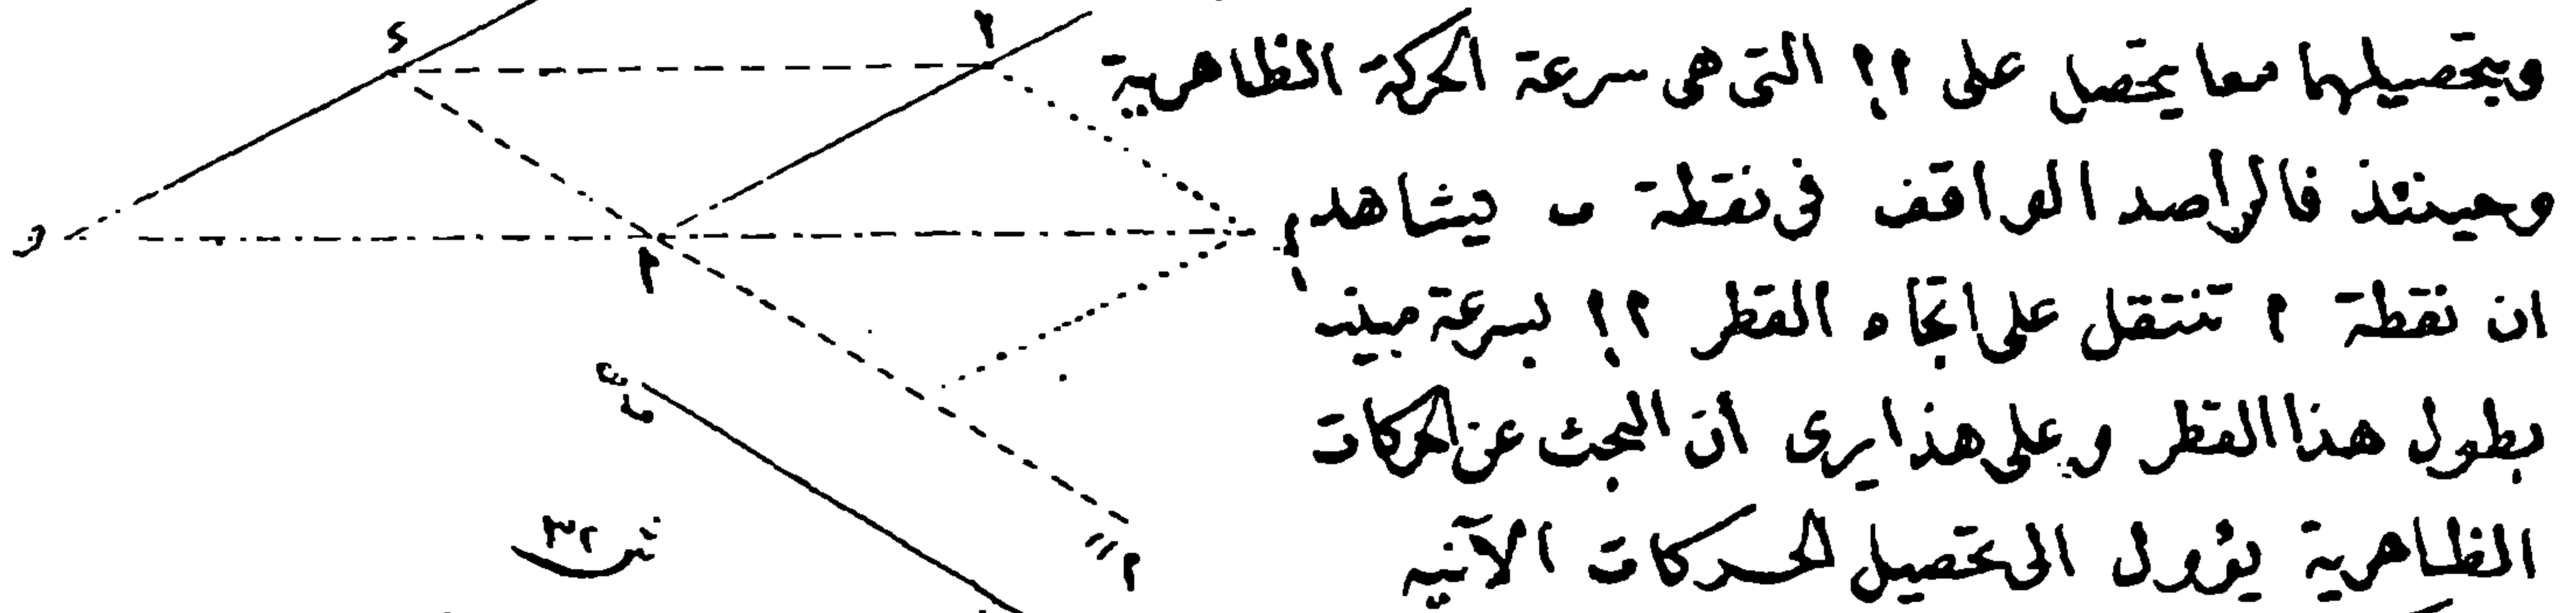 وبتحصيلهما معا يتحصل على م م التى هى سرعة الحركة الظاهرية
وحينئذ فالراصد الواقف فى نقطة ں يشاهد
ان نقطة م تنتقل على اتجاه القطر م م بسرعة مبينة
بطول هذا القطر وعلى هذا يرى أن البحث عن الحركات
الظاهرية يؤول الى تحصيل الحركات الآنيه
ء
م
و
م
م
م"
ش ٣٢